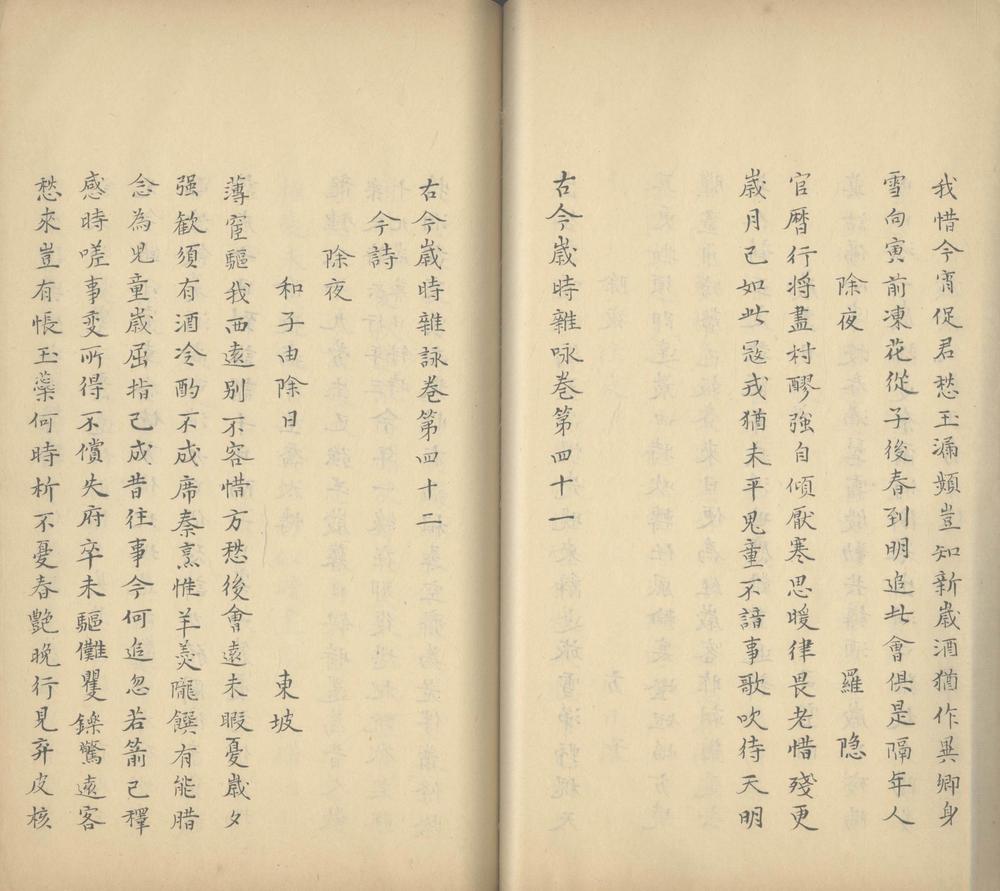 我惜今宵促君愁玉漏頻豈知新歲酒猶作異鄉身
雪向寅前凍花從子後春到明追此會俱是隔年人
除夜　羅隐
官曆行將盡村醪強自傾厭寒思暖律畏老惜殘更
歲月已如此寇戎猶未平兒童不諳事歌吹待天明
古今歲時雜咏卷第四十一
古今歲時雜詠卷第四十二
今詩
除夜
和子由除日　東坡
薄宦驅我西遠别不容惜方愁後會遠未暇憂歲夕
强歡須有酒冷酌不成席秦烹惟羊羹隴饌有能腊
念為兒童歲屈指已成昔往事今何追忽若箭已釋
感時嗟事变所得不償失府卒未驅儺矍鑠驚遠客
愁來豈有悵玉蘂何時析不憂春艷晚行見弃皮核